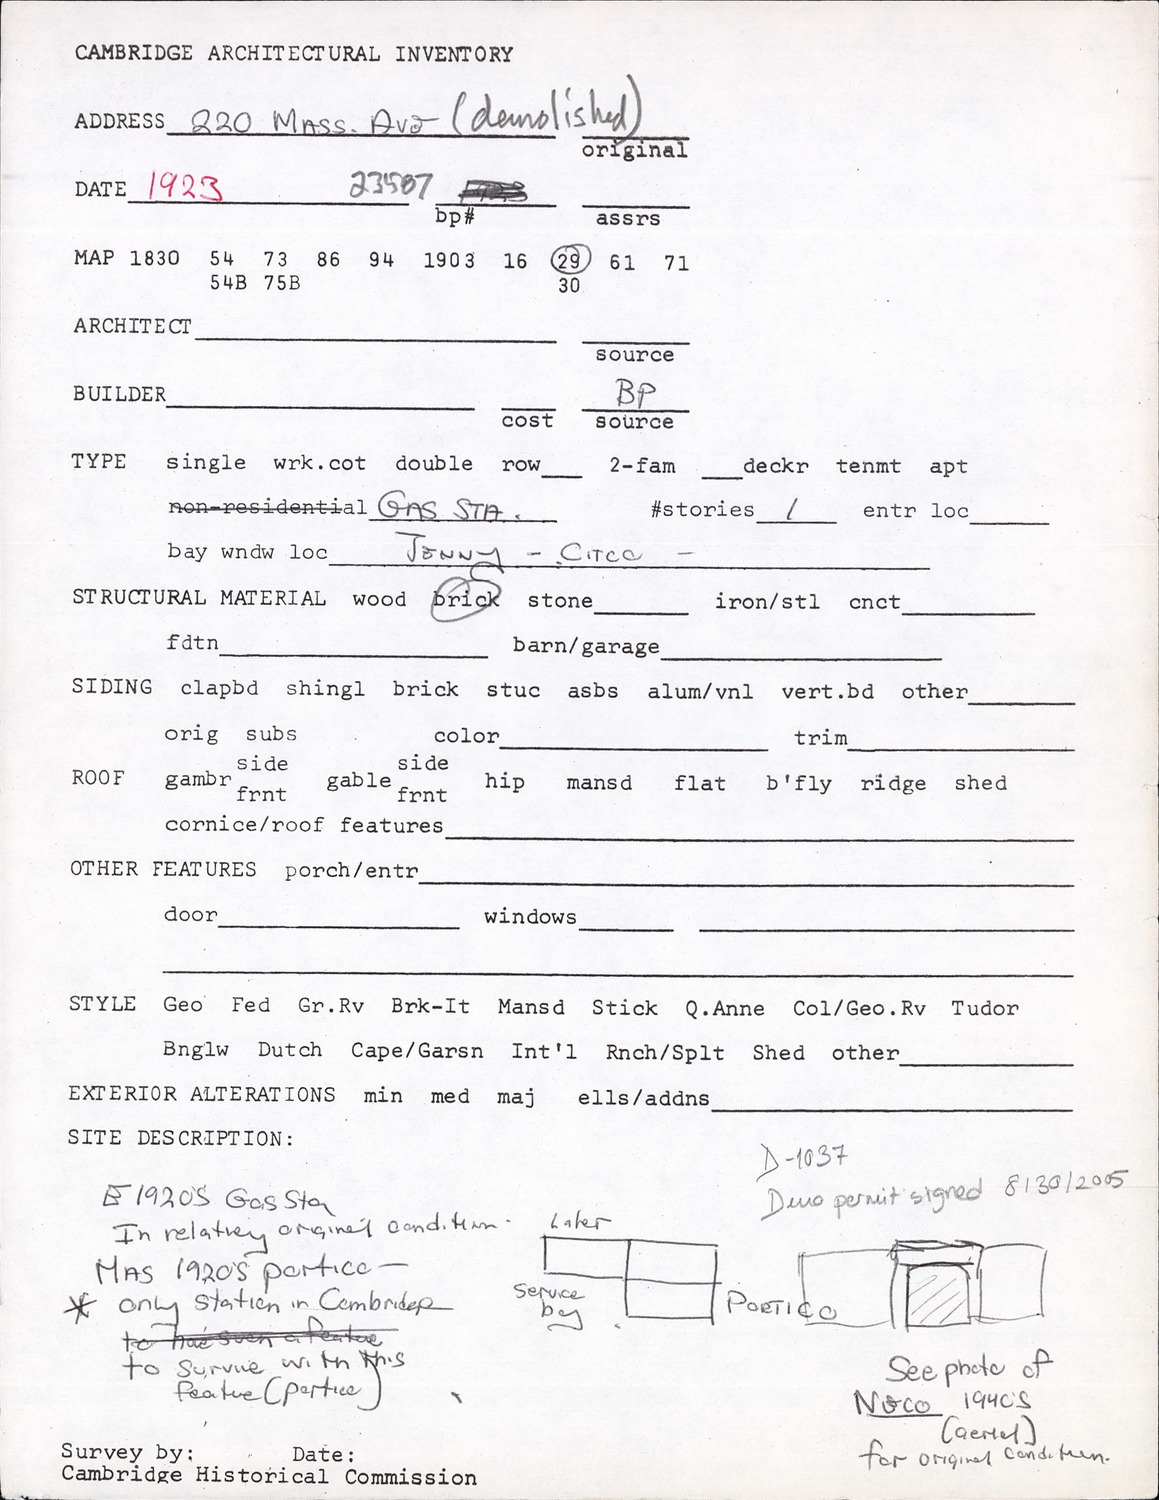 CAMBRIDGE ARCHITECTURAL INVENTORY
ADDRESS 220 Mass. Ave (demolished)
original
DATE 1923 23587
bp# assrs
MAP 1830 54 73 86 94 1903 16 29 61 71
54B 75B 30
ARCHITECT
source
BUILDER BP
cost source
TYPE single wrk.cot double row 2-fam deckr tenmt apt
non-residential GAS STA. #stories 1 entr loc
bay wndw loc JENNY - CITCO -
STRUCTURAL MATERIAL wood brick stone iron/stl cnct
fdtn barn/garage
SIDING clapbd shingl brick stuc asbs alum/vnl vert.bd other
orig subs color trim
side side
ROOF gambr gable hip mansd flat b'fly ridge shed
frnt frnt
cornice/roof features
OTHER FEATURES porch/entr
door windows
STYLE Geo Fed Gr.Rv Brk-It Mansd Stick Q.Anne Col/Geo.Rv Tudor
Bnglw Dutch Cape/Garsn Int'l Rnch/Splt Shed other
EXTERIOR ALTERATIONS min med maj ells/addns
SITE DESCRIPTION:
D-1037
Demo permit signed 8/30/2005
1920s Gas Sta
In relatively original condition.
Later
Has 1920s portico —
Service bay
PORTICO
* only station in Cambridge
to survive with this
feature (portico)
See photo of
NECO 1940s
(aerial)
for original condition.
Survey by: Date:
Cambridge Historical Commission